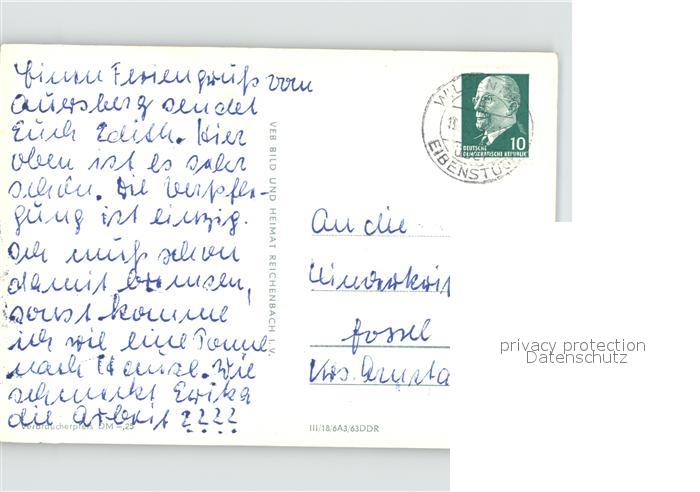 Einen Feriengruß vom
Auersberg sendet
Euch Edith. Hier
oben ist es sehr
schön. Die Verpfle-
gung ist einzig.
Ich muß schon
damit bremsen,
sonst komme
ich wie eine Tonne
nach Hause. Wie
schmeckt Erika
die Arbeit ????
Verbraucherpreis DM -,25
VEB BILD UND HEIMAT REICHENBACH I. V.
EIBENSTOCK
10
DEUTSCHE
DEMOKRATISCHE REPUBLIK
An die
Kinderkri
Gossel
Krs. Arnsta
III/18/6A3/63DDR
privacy protection
Datenschutz